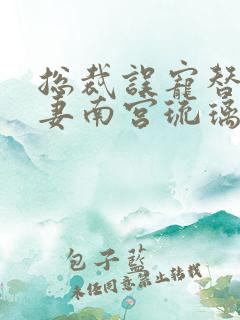 总裁误宠替
妻南宫琉璃
包子蓝
未经同意禁止转载